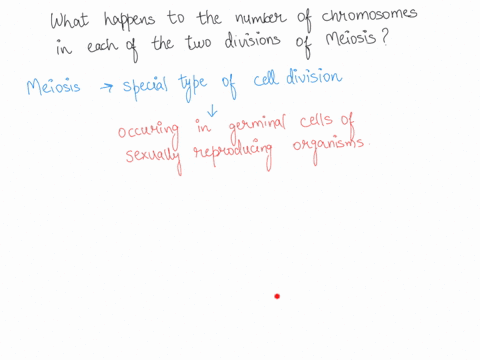 What happens to the number of chromosomes
in each of the two divisions of Meiosis?
Meiosis → special type of cell division
↓
occuring in germinal cells of
sexually reproducing organisms.